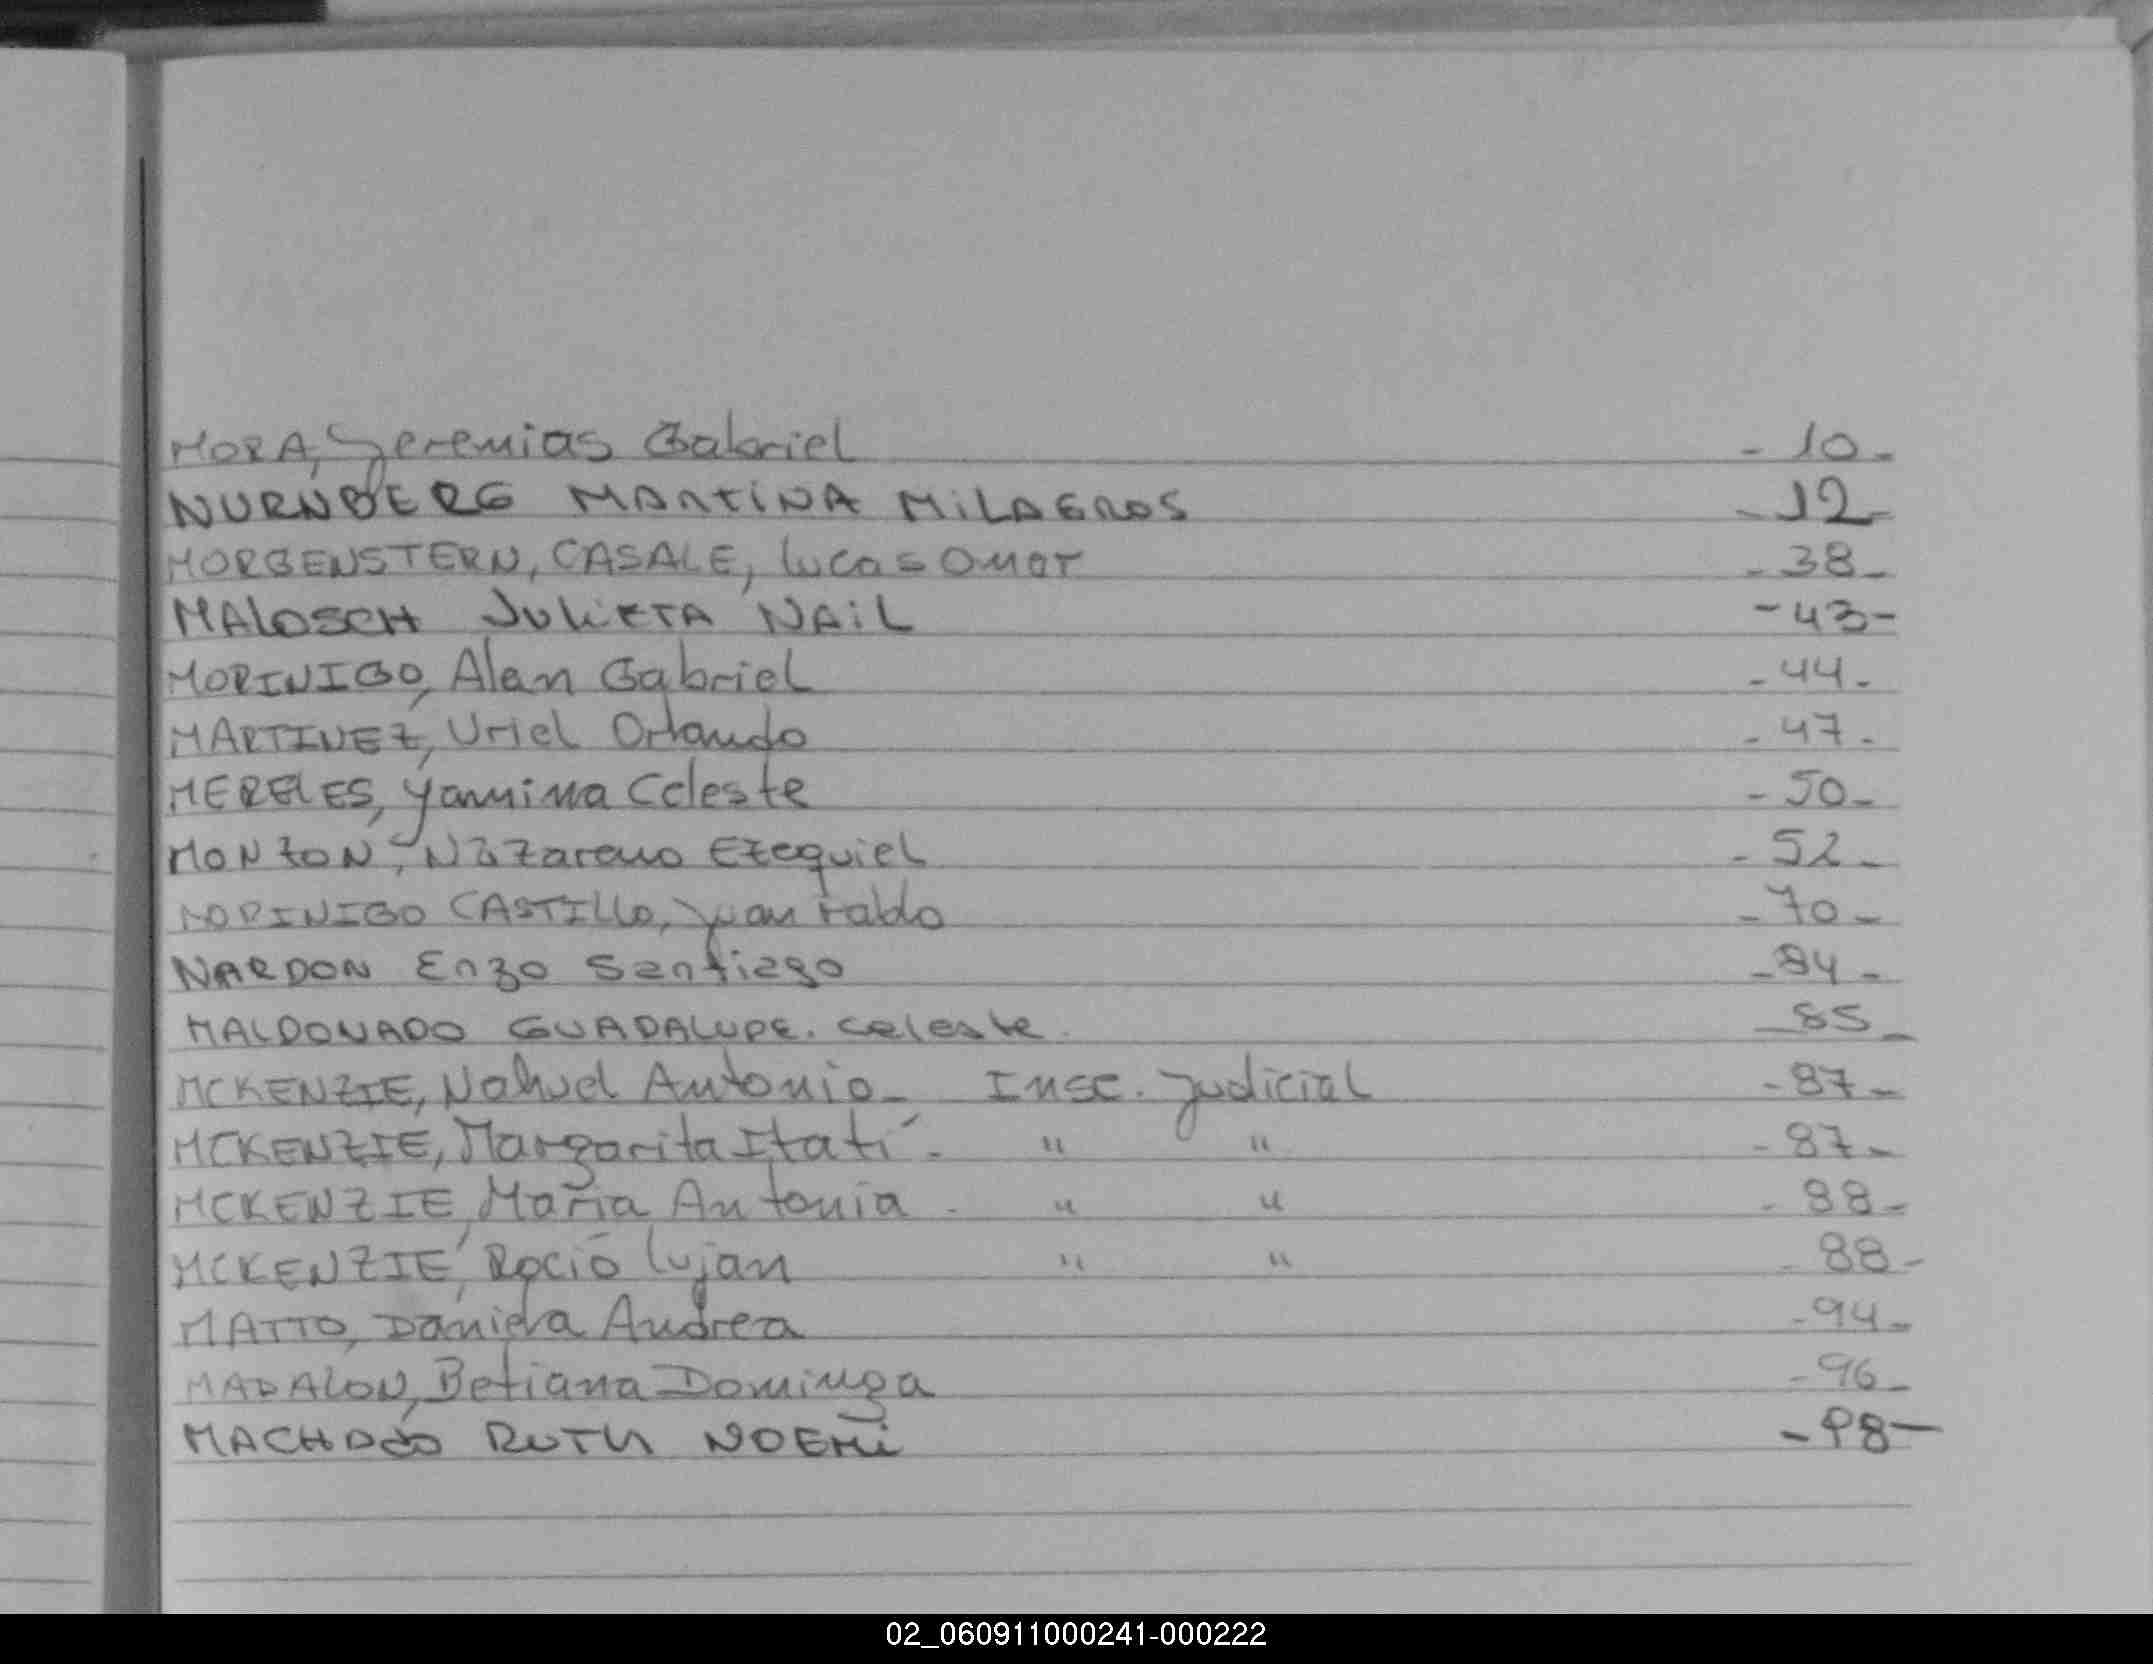 MORA, Jeremias Gabriel - 10 -
NURNBERG MARTINA MILAGROS - 12 -
MORGENSTERN, CASALE, Lucas Omar - 38 -
MALOSCH JULIETA NAIL - 43 -
MORINIGO, Alan Gabriel - 44 -
MARTINEZ, Uriel Orlando - 47 -
MERELES, Yamina Celeste - 50 -
MONZON, Nazareno Ezequiel - 52 -
MORINIGO CASTILLO, Juan Pablo - 70 -
NARDON Enzo Santiago - 84 -
MALDONADO GUADALUPE. Celeste. - 85 -
MCKENZIE, Nahuel Antonio - Insc. Judicial - 87 -
MCKENZIE, Margarita Itatí - " " - 87 -
MCKENZIE, María Antonia - " " - 88 -
MCKENZIE, Roció Lujan " " - 88 -
MATTO, Daniela Andrea - 94 -
MADALON, Betiana Dominga - 96 -
MACHADO RUTH NOEMI - 98 -
02_060911000241-000222